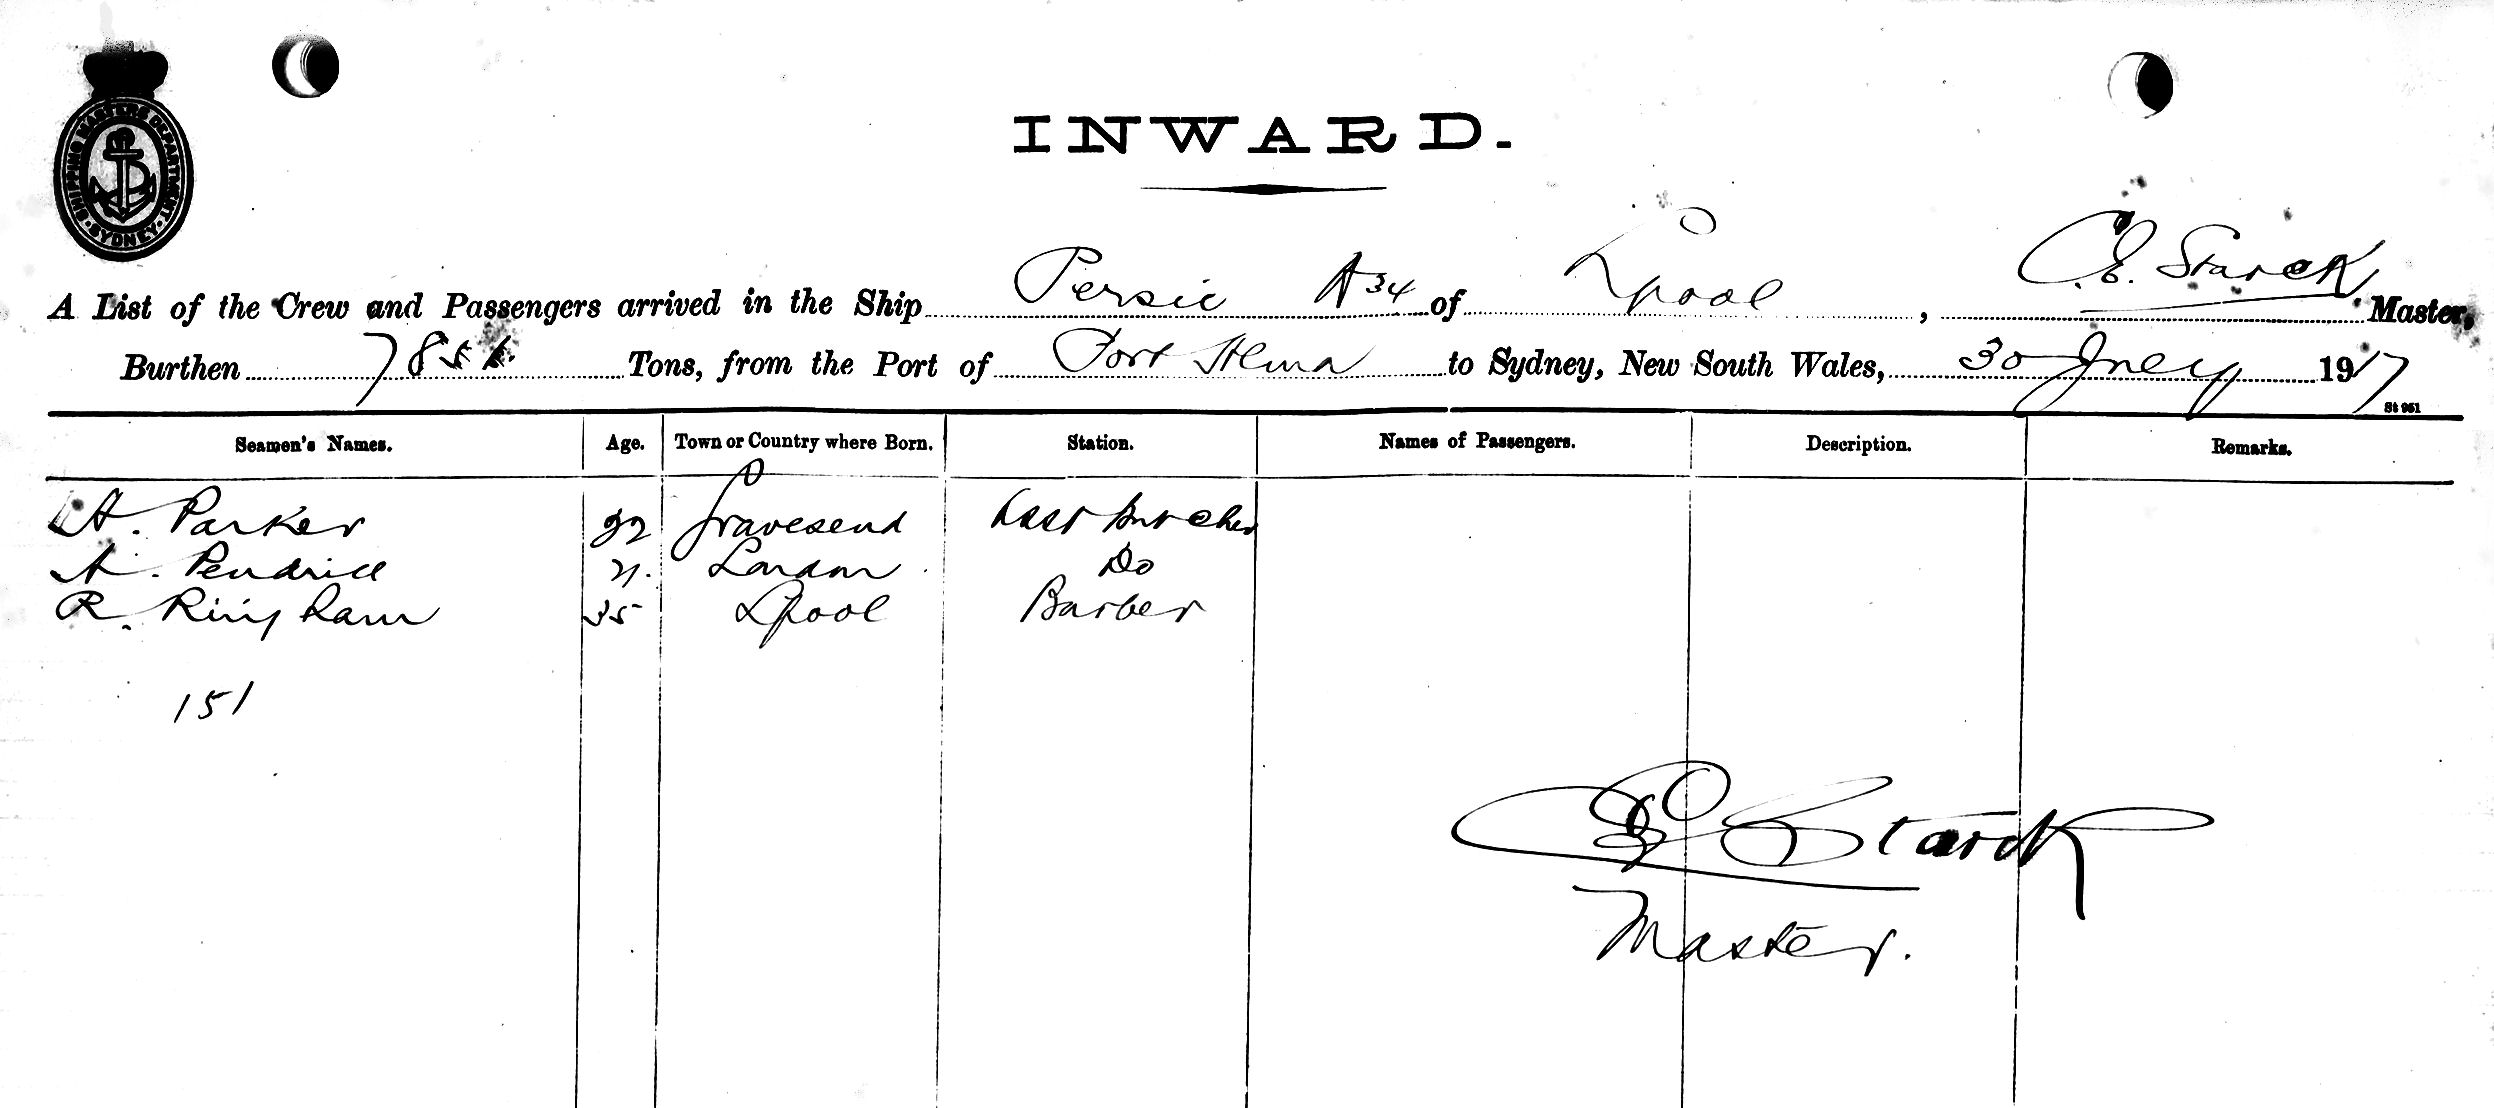 SHIPPING MASTERS DEPARTMENT · SYDNEY ·
INWARD.
A List of the Crew and Passengers arrived in the Ship Persic A34 of Lpool, C.E. Starck Master,
Burthen 785 Tons, from the Port of Port to Sydney, New South Wales, 30 July 1917
St 951
Seamen's Names. Age. Town or Country where Born. Station. Names of Passengers. Description. Remarks.
A. Parker Gravesend Asst Butcher
A. Pendrill 21. London Do
R. Ringham 35 Lpool Barber
151
CE Starck
Master.